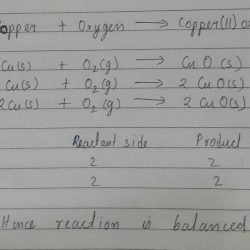 opper + Oxygen → Copper(II) o
Cu(s) + O₂(g) → CuO(s)
Cu(s) + O₂(g) → 2 CuO(s)
2Cu(s) + O₂(g) → 2 CuO(s)
Reactant side Product
2 2
2 2
Hence reaction is balanced